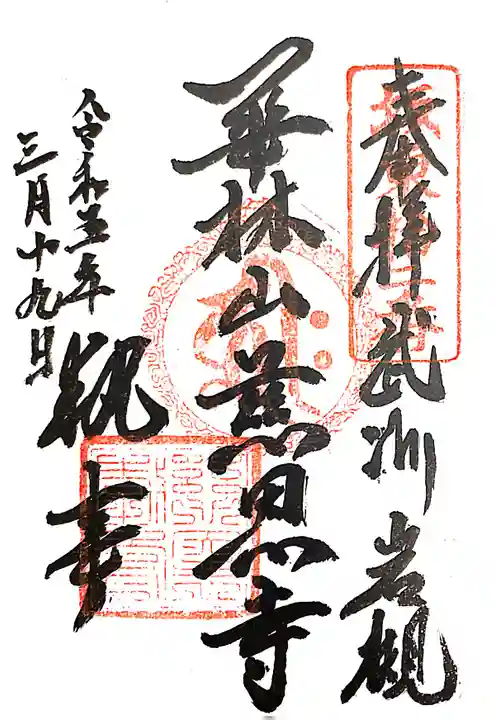 奉拝 武州 岩槻
華林山慈恩寺
執事
令和五年
三月十九日